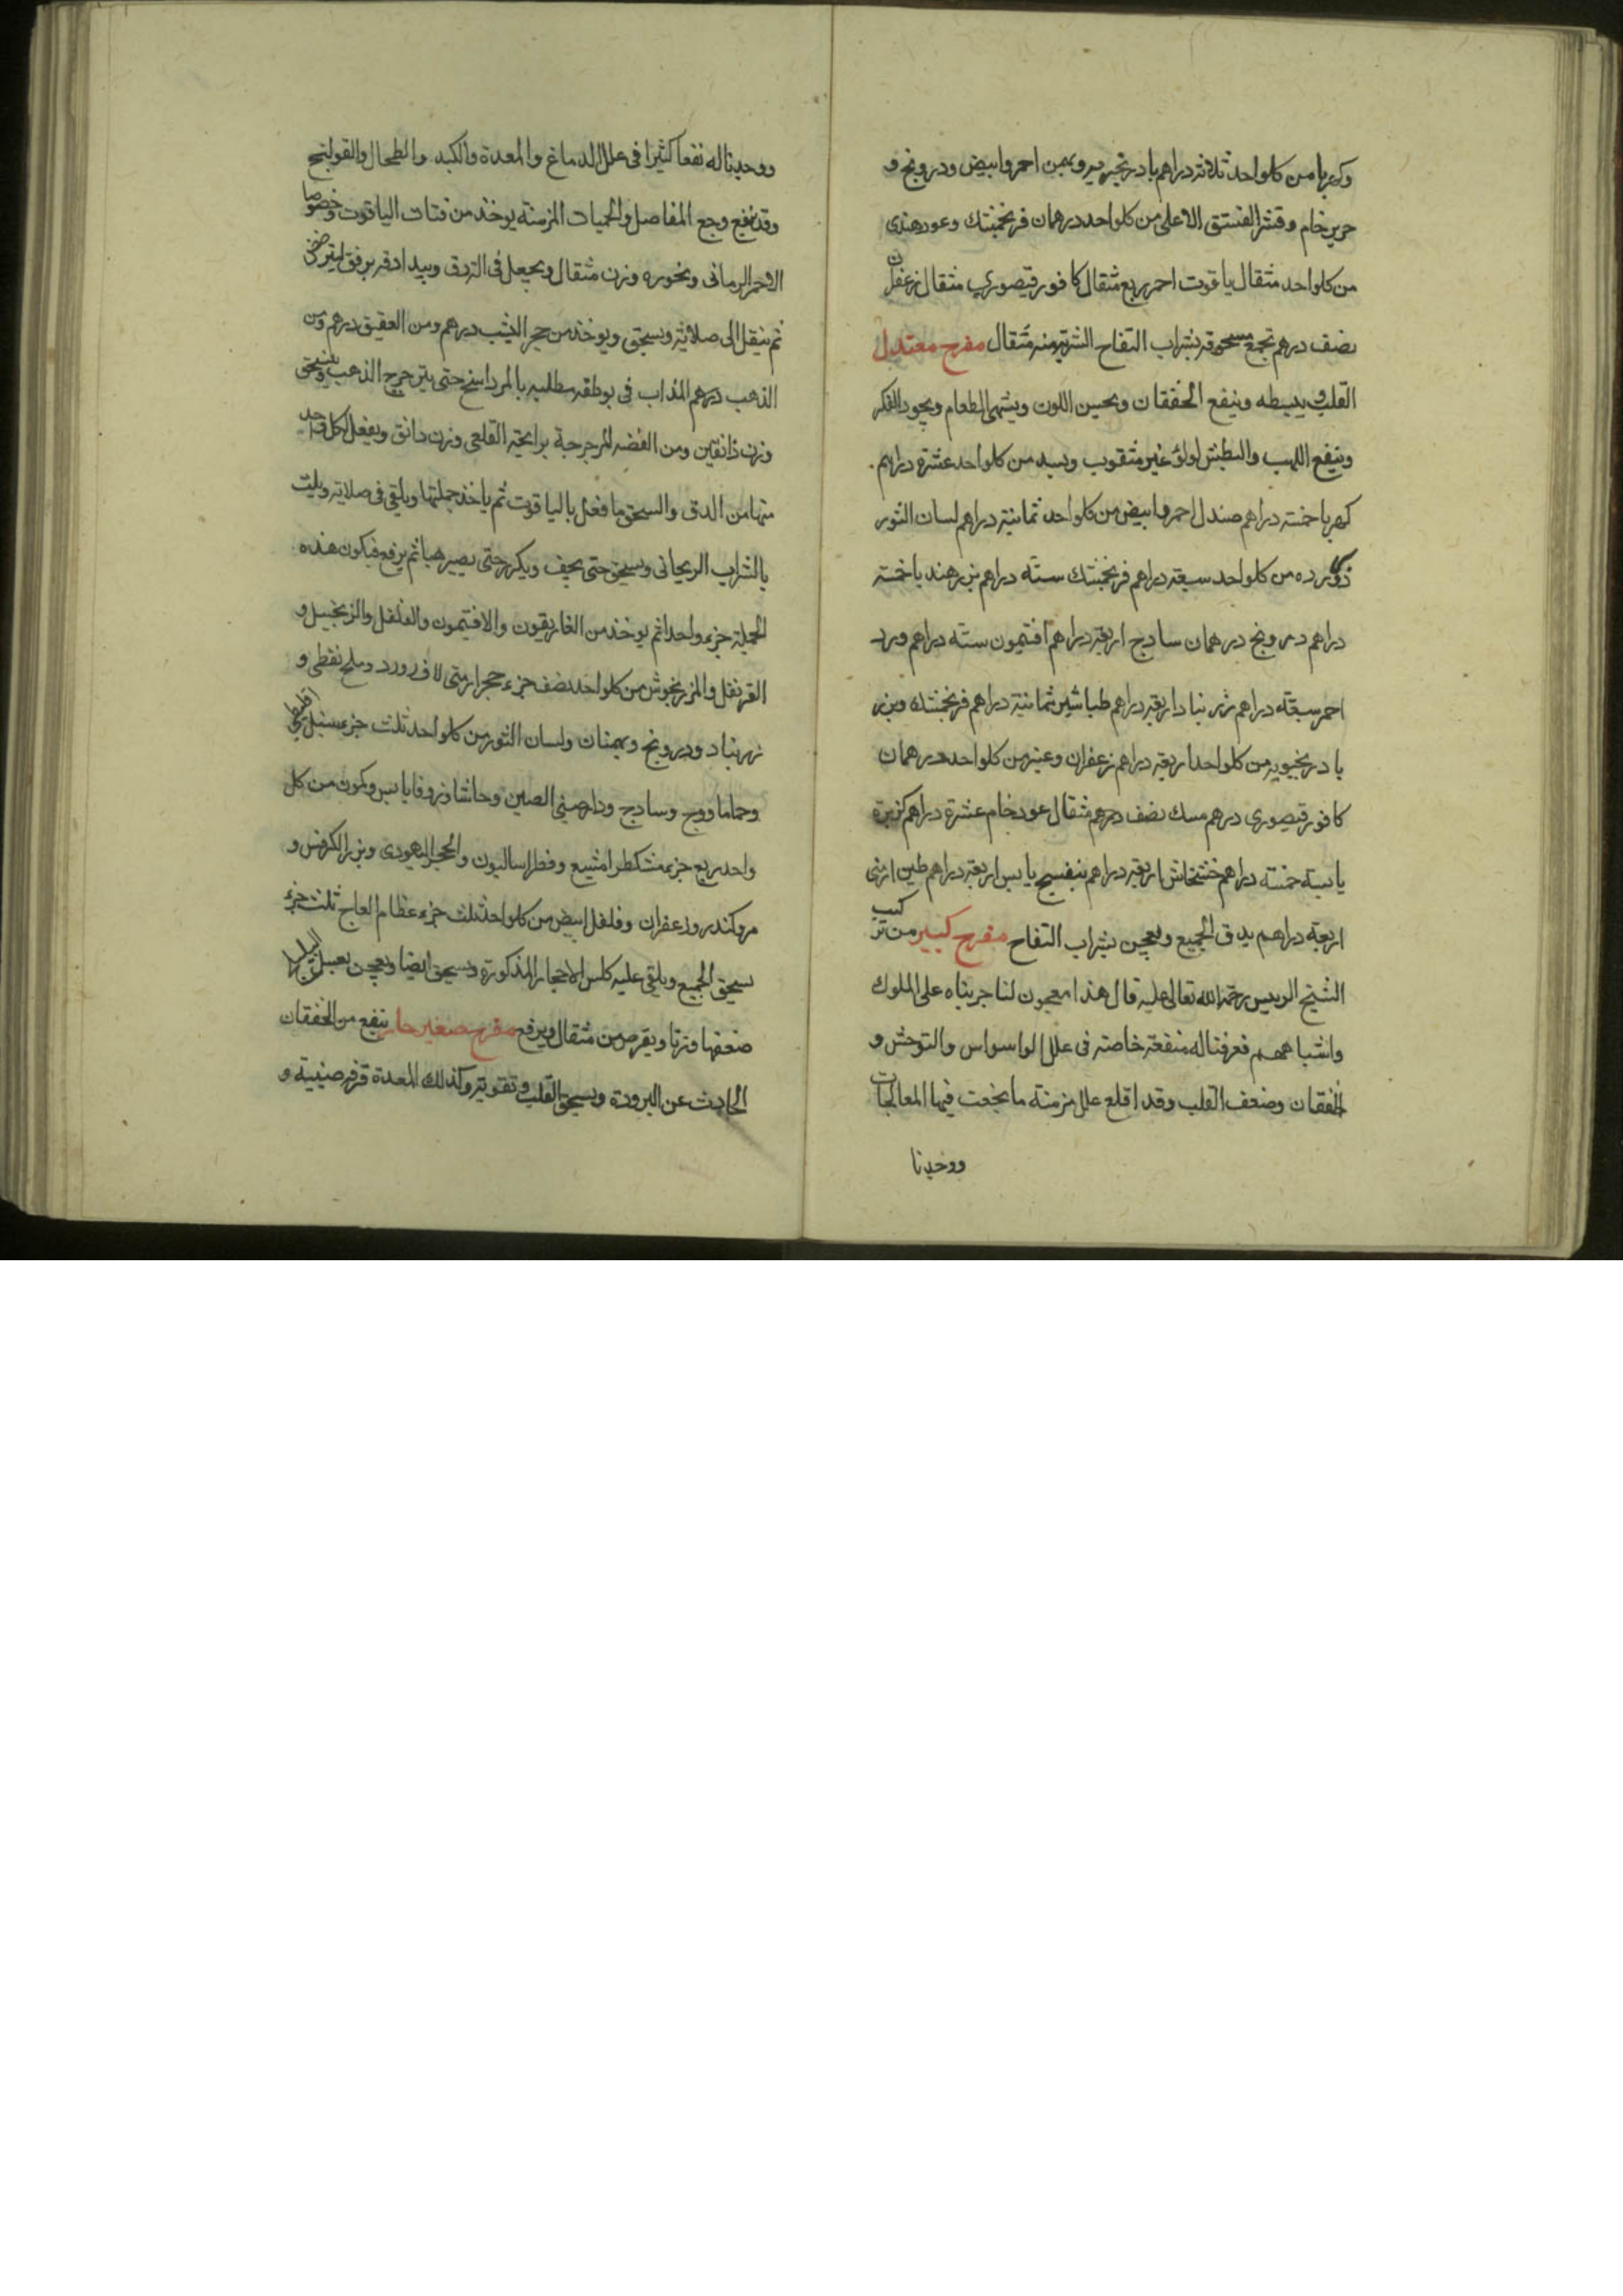 وكهربا من كلواحد ثلاثة دراهم بادرنجبويه وبهمن احمر وابيض ودرونج و
حرير خام وقشر الفستق الاعلى من كلواحد درهمان فرنجمشك وعود هندى
من كلواحد مثقال ياقوت احمر ربع مثقال كافور قيصوري مثقال زعفران
نصف درهم تجمع مسحوقة بشراب التفاح الشربة منه مثقال مفرح معتدل
القلب ويبسطه وينفع الخفقان ويحسن اللون ويشهى الطعام ويجود الفكر
وينفع اللهب والعطش لولؤ غير مثقوب وبسد من كلواحد عشرة دراهم
كهربا خمسة دراهم صندل احمر وابيض من كلواحد ثمانية دراهم لسان الثور
من كلواحد سبعة دراهم فرنجمشك ستة دراهم بزر هندبا خمسة
دراهم درونج درهمان سادج اربعة دراهم افتيمون ستة دراهم ورد
احمر سبعة دراهم زرنباد اربعة دراهم طباشير ثمانية دراهم فرنجمشك وبزر
بادرنجبويه من كلواحد اربعة دراهم زعفران وعنبر من كلواحد درهمان
كافور قيصورى درهم مسك نصف درهم مثقال عود خام عشرة دراهم كزبرة
يابسة خمسة دراهم خشخاش اربعة دراهم بنفسج يابس اربعة دراهم طين ارمنى
اربعة دراهم يدق الجميع ويعجن بشراب التفاح مفرح كبير من تركيب
الشيخ الرييس رحمة الله تعالى عليه قال هذا معجون لنا جربناه على الملوك
واشباههم فعرفنا له منفعة خاصة فى علل الواسواس والتوحش و
الخفقان وضعف القلب وقد اقلع علل مزمنة ما نجعت فيها المعالجات
ووجدنا
ووجدنا له نفعا كثيرا فى علل الدماغ والمعدة والكبد والطحال والقولنج
وقد ينفع وجع المفاصل والحميات المزمنة يوخذ من فتات الياقوت وخصوصا
الاحمر الرمانى ونحوره وزن مثقال ويجعل فى الدق ويبدا دقه برفق
ثم ينقل الى صلاية ويسحق ويوخذ من حجر اليشب درهم ومن العقيق درهم ومن
الذهب درهم المذاب فى بوطقة مطلية بالمرداسنج حتى يترجرج الذهب ويسحق
وزن دانقين ومن الفضة المرجرجة برايحة القلعى وزن دانق ويفعل لكل واحد
منها من الدق والسحق ما فعل بالياقوت ثم ياخذ جملتها ويلقى فى صلاية ويلت
بالشراب الريحانى ويسحق حتى يجف ويكرر حتى يصير هبا ثم يرفع فيكون هذه
الجملة جزء واحدا ثم يوخذ من الغاريقون والافتيمون والفلفل والزنجبيل و
القرنفل والمرزنجوش من كلواحد نصف جزء حجر ارمنى لازورد وملح نفطى و
زرنباد ودرونج وبهمنان ولسان الثور من كلواحد ثلث جزء سنبل
وحماما ووج وسادج ودارصينى الصين وحاشا وزوفا يابس وكمون من كل
واحد ربع جزء مشكطرامشيع وفطراساليون والحجر اليهودى وبزر الكرفس و
مر وكندر وزعفران وفلفل ابيض من كلواحد ثلث جزء عظام العاج ثلث جزء
يسحق الجميع ويلقى عليه كلس الاحجار المذكورة ويسحق ايضا ويعجن بعسل
ضعفها وزنا ويقرص من مثقال ويرفع مفرح صغير حار ينفع من الخفقان
الحادث عن البرودة ويسحق القلب وتقويته وكذلك المعدة قرفة صينية و